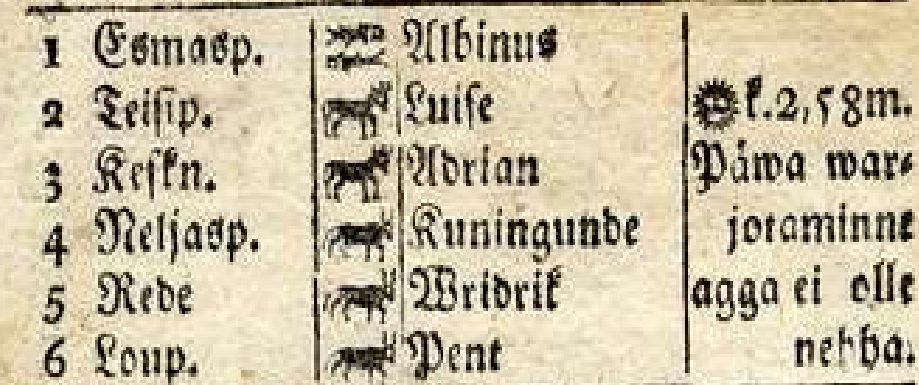 1 Esmasp. Albinus
2 Teisip. Luise k.2,58m.
3 Keskn. Adrian Päwa war⸗
4 Neljasp. Kuningunde joraminne
5 Rede Wridrik agga ei olle
6 Loup. Pent nehha.